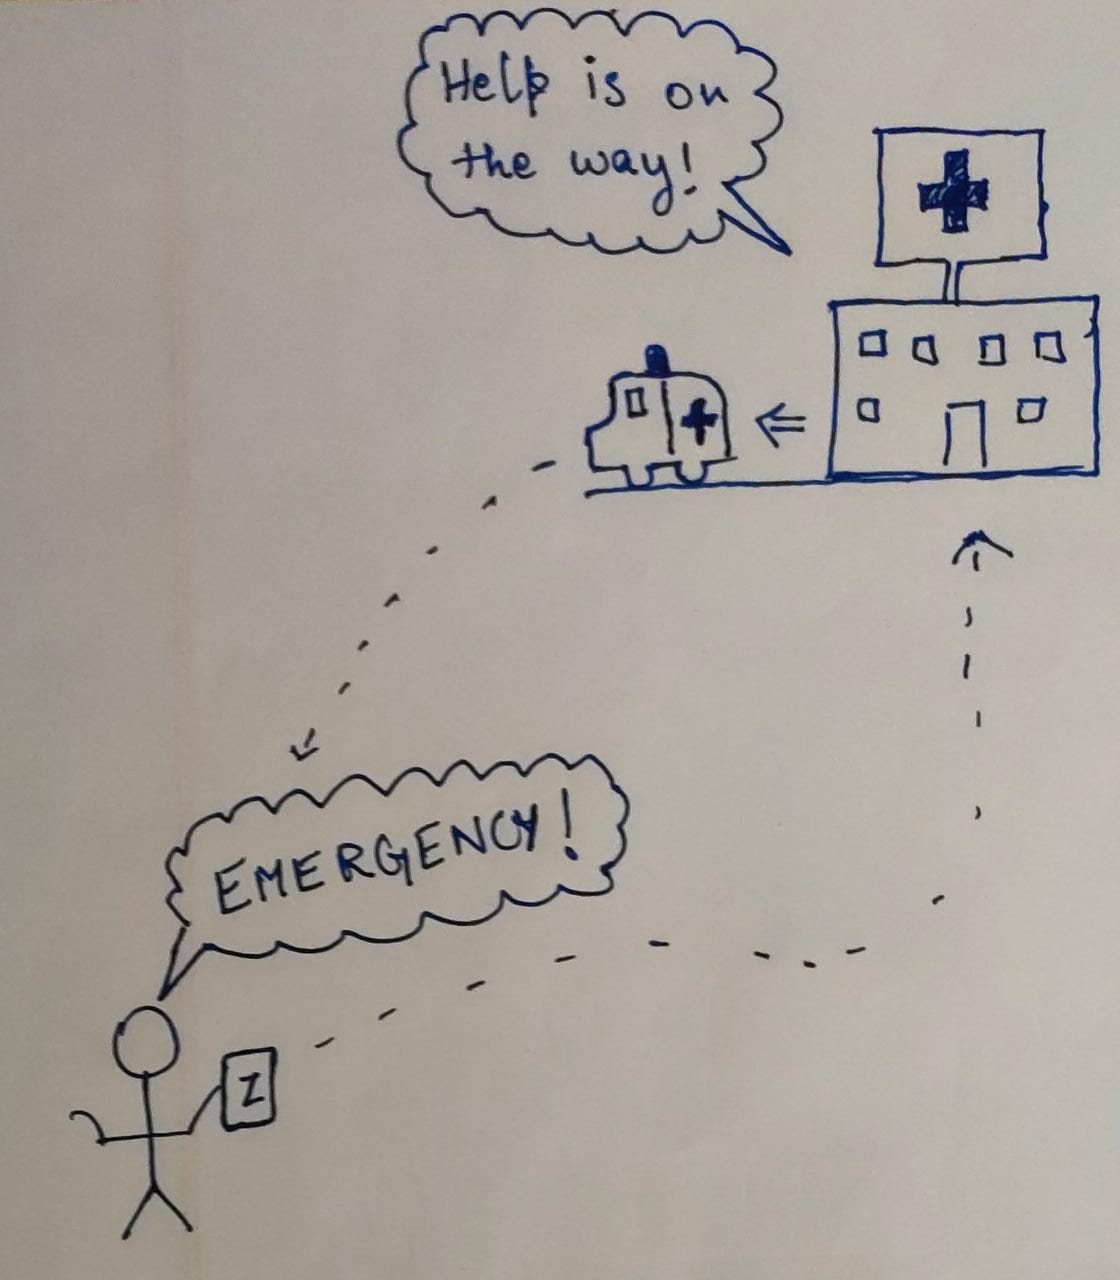 Help is on
the way!
EMERGENCY!
Z